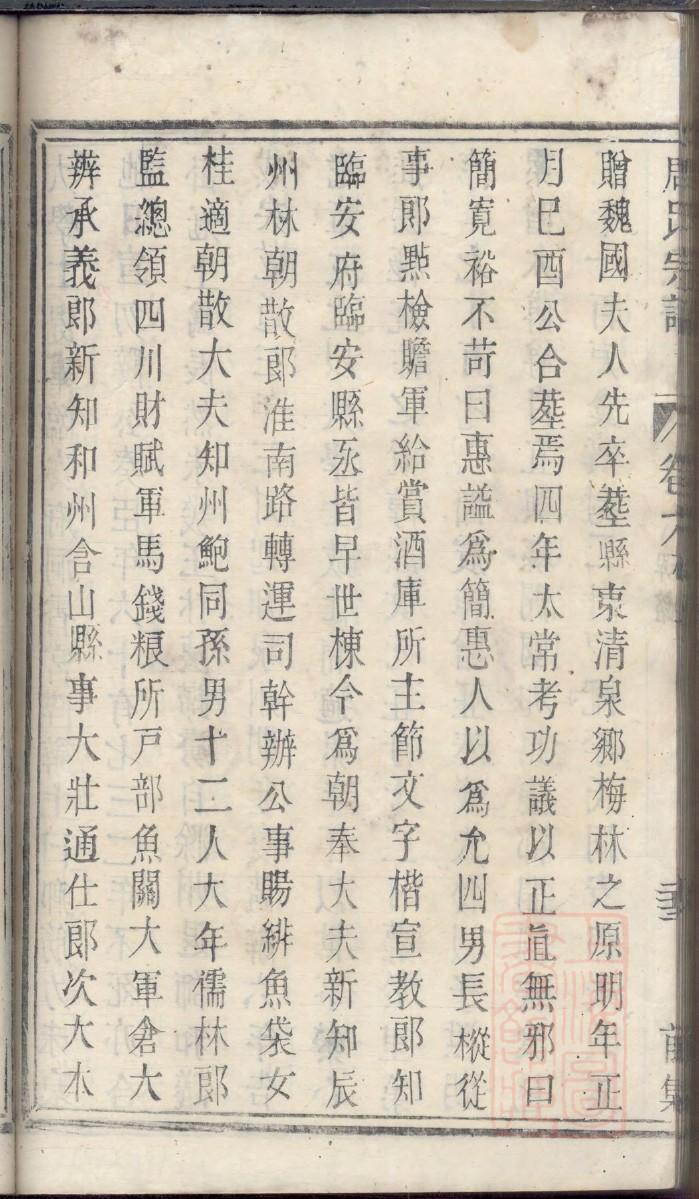 周氏宗譜 卷六
贈魏國夫人先卒塟縣東清泉鄉梅林之原明年正
月巳酉公合塟焉四年太常考功議以正直無邪曰
簡寬裕不苛曰惠謚爲簡惠人以爲允四男長樅從
事郎點檢贍軍給賞酒庫所主節文字楷宣教郎知
臨安府臨安縣丞皆早世棟今爲朝奉大夫新知辰
州林朝散郎淮南路轉運司幹辦公事賜緋魚袋女
桂適朝散大夫知州鮑同孫男十二人大年儒林郎
監總領四川財賦軍馬錢粮所戸部魚關大軍倉大
辨承義郎新知和州含山縣事大壯通仕郎次大本